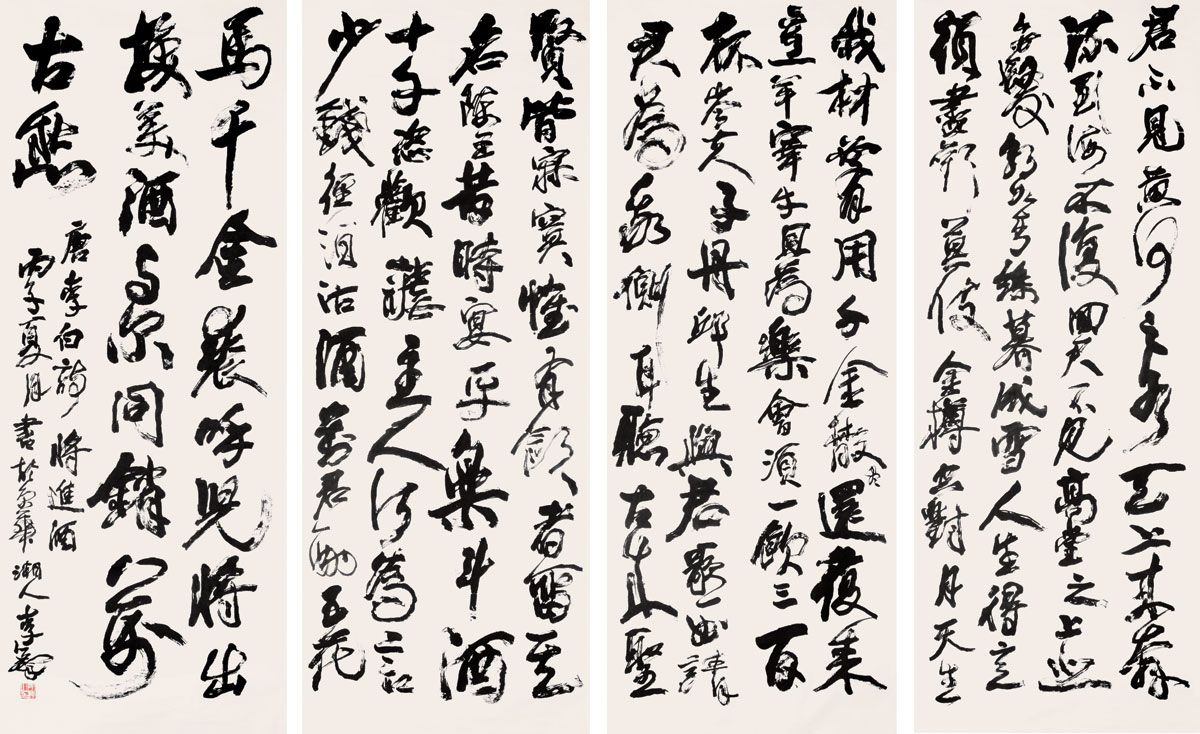 君不見黃河之水天上來奔
流到海不復回君不見高堂之上悲
白髮朝如青絲暮成雪人生得意
須盡歡莫使金樽空對月天生
我材必有用千金散盡還復來
烹羊宰牛且為樂會須一飲三百
杯岑夫子丹邱生與君歌一曲請
君為我側耳聽古來聖
賢皆寂寞惟有飲者留其
名陳王昔時宴平樂斗酒
十千恣歡謔主人何為言
少錢徑須沽酒對君酌五花
馬千金裘呼兒將出
換美酒與爾同銷萬
古愁
唐李白詩將進酒
丙子夏月書於京華湘人李鐸